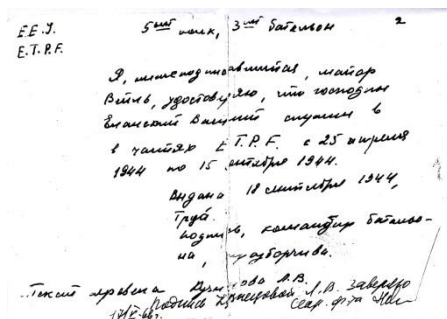 Е.Е.У.
E.T.P.F.
5ый полк, 3ий батальон
2
Я, нижеподписавшийся, майор
удостоверяю, что господин
Василий служил в
в частях E.T.P.F. с 25 апреля
1944 по 15 сентября 1944.
Выдана 18 сентября 1944,
Подпись, командир батальо-
на, неразборчива.
Текст провела Л.В.
Подпись Кузнецовой Л.В. заверяю
Секр.